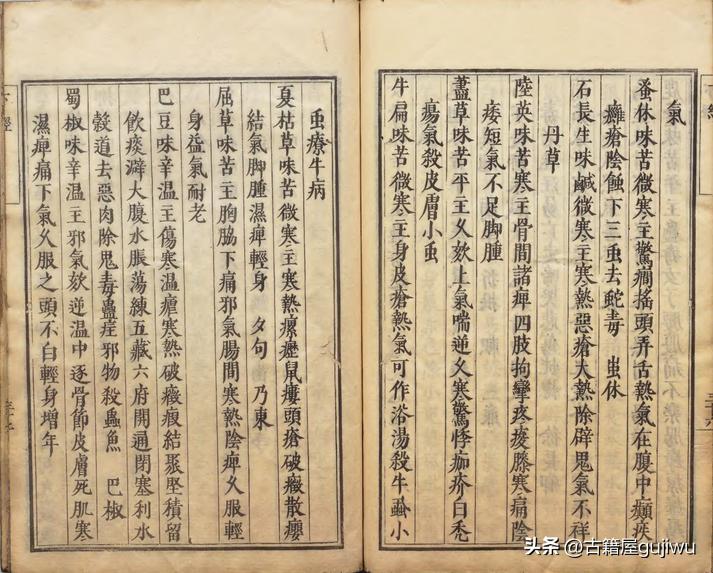 氣
蚤休味苦微寒主驚癇搖頭弄舌熱氣在腹中癲疾
癰瘡陰蝕下三蟲去蛇毒 蚩休
石長生味鹹微寒主寒熱惡瘡大熱除辟鬼氣不祥
丹草
陸英味苦寒主骨間諸痺四肢拘攣疼痠膝寒痛陰
痿短氣不足脚腫
藎草味苦平主久欬上氣喘逆久寒驚悸痂疥白禿
瘍氣殺皮膚小虫
牛扁味苦微寒主身皮瘡熱氣可作浴湯殺牛蝨小
虫療牛病
夏枯草味苦微寒主寒熱瘰癧鼠瘻頭瘡破癥散癭
結氣脚腫濕痺輕身 夕句 乃東
屈草味苦主胸脇下痛邪氣腸間寒熱陰痺久服輕
身益氣耐老
巴豆味辛溫主傷寒溫瘧寒熱破癥瘕結聚堅積留
飲痰澼大腹水脹蕩練五藏六府開通閉塞利水
穀道去惡肉除鬼毒蠱疰邪物殺蟲魚 巴椒
蜀椒味辛溫主邪氣欬逆溫中逐骨節皮膚死肌寒
濕痺痛下氣久服之頭不白輕身增年
头条 @古籍屋gujiwu